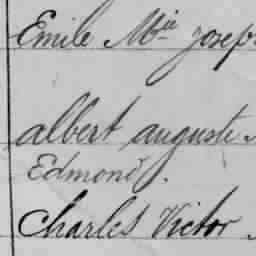 Emile Mie Josep
albert auguste
Edmond.
Charles Victor